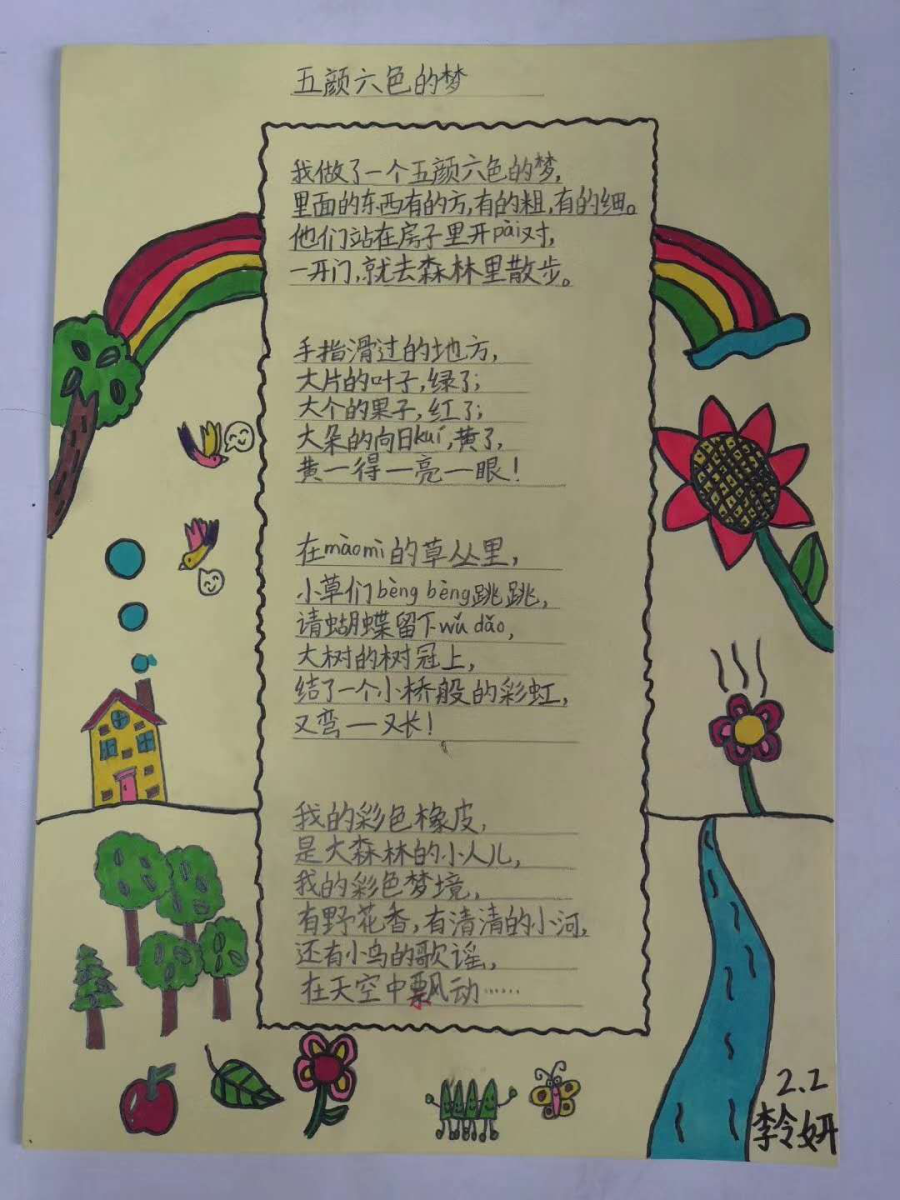 五颜六色的梦
我做了一个五颜六色的梦,
里面的东西有的方,有的粗,有的细。
他们站在房子里开pài对,
一开门,就去森林里散步。
手指滑过的地方,
大片的叶子,绿了;
大个的果子,红了;
大朵的向日kuí,黄了,
黄一得一亮一眼!
在màomì的草丛里,
小草们bèng bèng跳跳,
请蝴蝶留下wǔ dǎo,
大树的树冠上,
结了一个小桥般的彩虹,
又弯一又长!
我的彩色橡皮,
是大森林的小人儿,
我的彩色梦境,
有野花香,有清清的小河,
还有小鸟的歌谣,
在天空中飘动……
2.2
李令妍